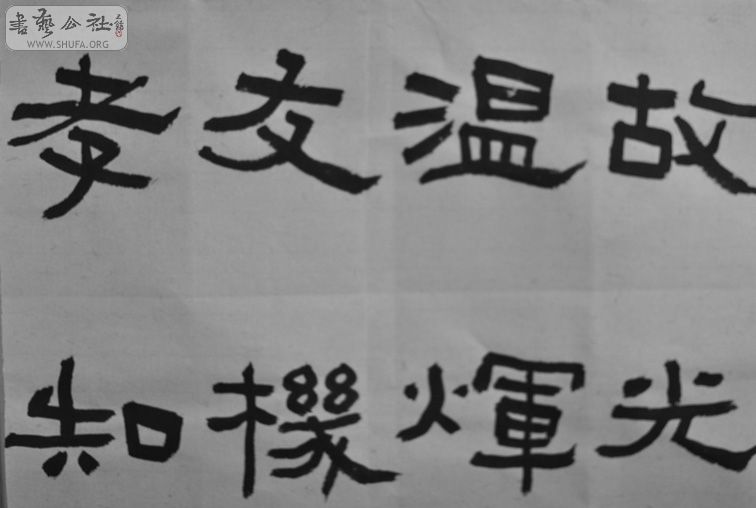 書藝公社
WWW.SHUFA.ORG
孝友温故
知機煇光